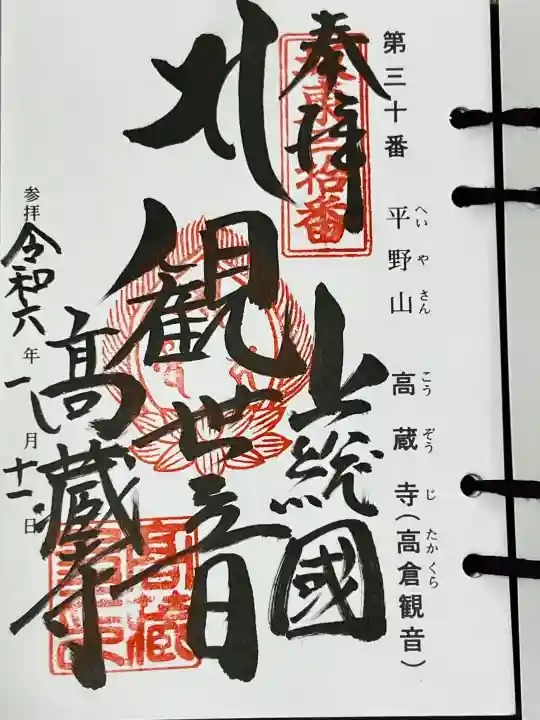 第三十番 平野山 高蔵寺(高倉観音)
へいやさん こうぞうじ たかくら
奉拝
坂東三十番
上総國
北
観世音
高蔵寺
参拝 令和六年 一月十一日